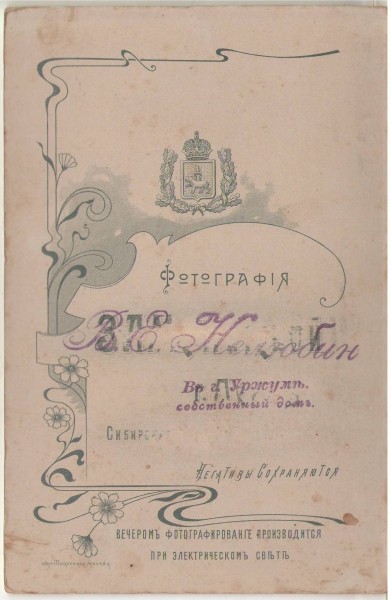 Фотографія
В. Е. Нелюбин
Въ г. Уржумѣ.
собственный домъ.
Негативы Сохраняются
Вечеромъ фотографированіе производится
при электрическомъ свѣтѣ